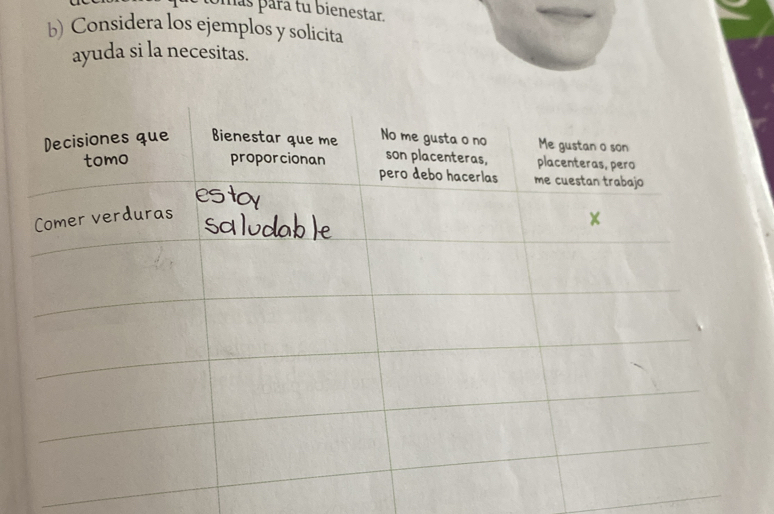 decisiones que tomas para tu bienestar.
b) Considera los ejemplos y solicita
ayuda si la necesitas.
Decisiones que
tomo
Bienestar que me
proporcionan
No me gusta o no
son placenteras,
pero debo hacerlas
Me gustan o son
placenteras, pero
me cuestan trabajo
Comer verduras
estoy
saludable
X